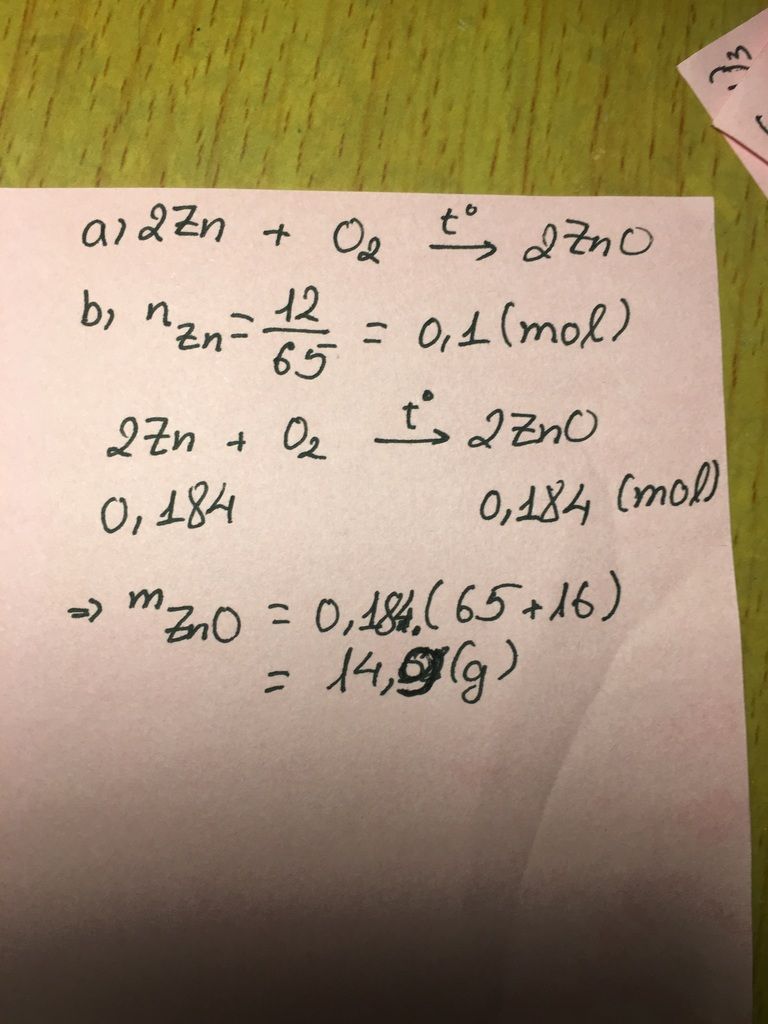 a) 2Zn + O₂ t° → 2ZnO
b, nZn = 12/65 = 0,1 (mol)
2Zn + O₂ t° → 2ZnO
0,184 0,184 (mol)
=> mZnO = 0,184.(65+16)
= 14,9 (g)